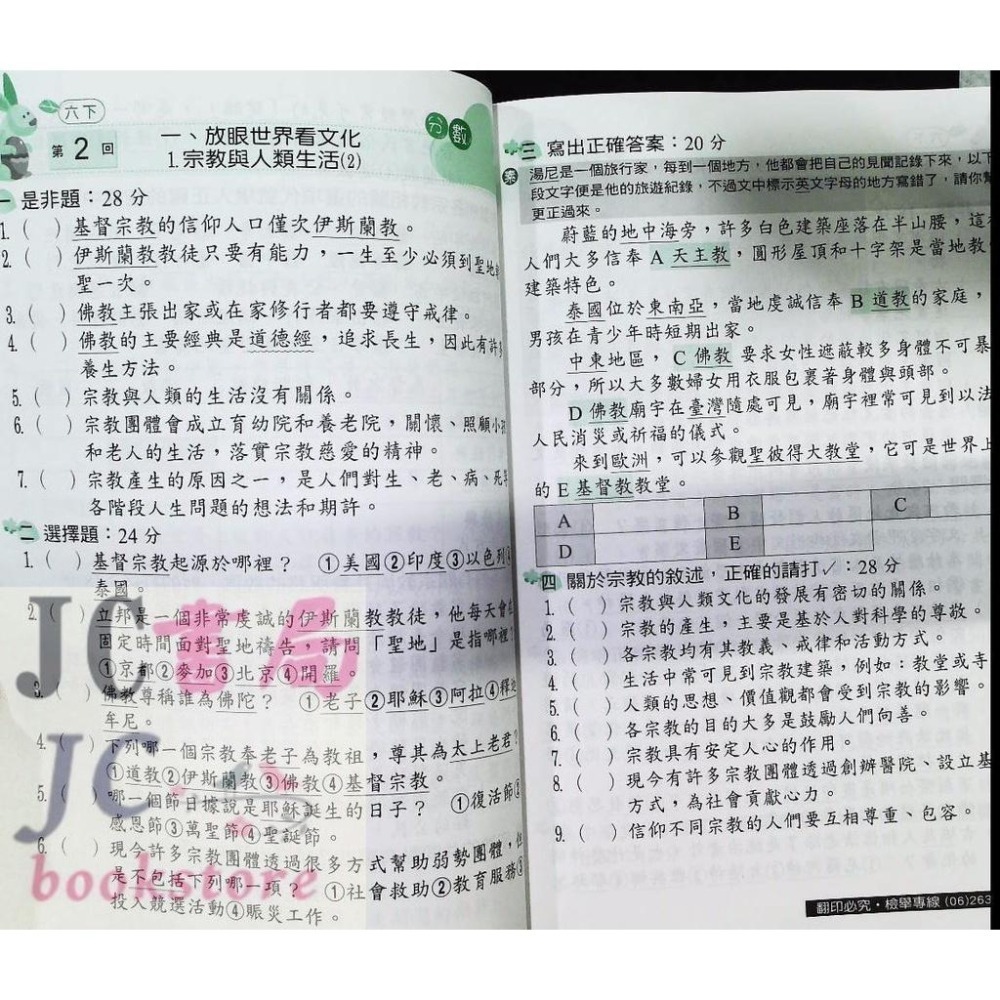 六下
第2回
一、放眼世界看文化
1.宗教與人類生活(2)
分數
一 是非題：28分
1.( ) 基督宗教的信仰人口僅次伊斯蘭教。
2.( ) 伊斯蘭教教徒只要有能力，一生至少必須到聖地
聖一次。
3.( ) 佛教主張出家或在家修行者都要遵守戒律。
4.( ) 佛教的主要經典是道德經，追求長生，因此有許
養生方法。
5.( ) 宗教與人類的生活沒有關係。
6.( ) 宗教團體會成立育幼院和養老院，關懷、照顧小
和老人的生活，落實宗教慈愛的精神。
7.( ) 宗教產生的原因之一，是人們對生、老、病、死
各階段人生問題的想法和期許。
二 選擇題：24分
1.( ) 基督宗教起源於哪裡？ ①美國②印度③以色列
泰國。
2.( ) 立邦是一個非常虔誠的伊斯蘭教教徒，他每天會
固定時間面對聖地禱告，請問「聖地」是指哪裡
①京都②麥加③北京④開羅。
3.( ) 佛教尊稱誰為佛陀？ ①老子②耶穌③阿拉④釋迦
牟尼。
4.( ) 下列哪一個宗教奉老子為教祖，尊其為太上老君？
①道教②伊斯蘭教③佛教④基督宗教。
5.( ) 哪一個節日據說是耶穌誕生的日子？ ①復活節②
感恩節③萬聖節④聖誕節。
6.( ) 現今許多宗教團體透過很多方式幫助弱勢團體，但
是不包括下列哪一項？ ①社會救助②教育服務③
投入競選活動④賑災工作。
三 寫出正確答案：20分
湯尼是一個旅行家，每到一個地方，他都會把自己的見聞記錄下來，以下
段文字便是他的旅遊紀錄，不過文中標示英文字母的地方寫錯了，請你幫
更正過來。
蔚藍的地中海旁，許多白色建築座落在半山腰，這裡
人們大多信奉 A 天主教，圓形屋頂和十字架是當地教
建築特色。
泰國位於東南亞，當地虔誠信奉 B 道教的家庭，
男孩在青少年時短期出家。
中東地區，C 佛教 要求女性遮蔽較多身體不可暴
部分，所以大多數婦女用衣服包裹著身體與頭部。
D 佛教廟宇在臺灣隨處可見，廟宇裡常可見到以法
人民消災或祈福的儀式。
來到歐洲，可以參觀聖彼得大教堂，它可是世界上
的 E 基督教教堂。
A B C
D E
四 關於宗教的敘述，正確的請打✓：28分
1.( ) 宗教與人類文化的發展有密切的關係。
2.( ) 宗教的產生，主要是基於人對科學的尊敬。
3.( ) 各宗教均有其教義、戒律和活動方式。
4.( ) 生活中常可見到宗教建築，例如：教堂或寺
5.( ) 人類的思想、價值觀都會受到宗教的影響。
6.( ) 各宗教的目的大多是鼓勵人們向善。
7.( ) 宗教具有安定人心的作用。
8.( ) 現今有許多宗教團體透過創辦醫院、設立基
方式，為社會貢獻心力。
9.( ) 信仰不同宗教的人們要互相尊重、包容。
翻印必究・檢舉專線 (06)263
JC書局
JC
bookstore